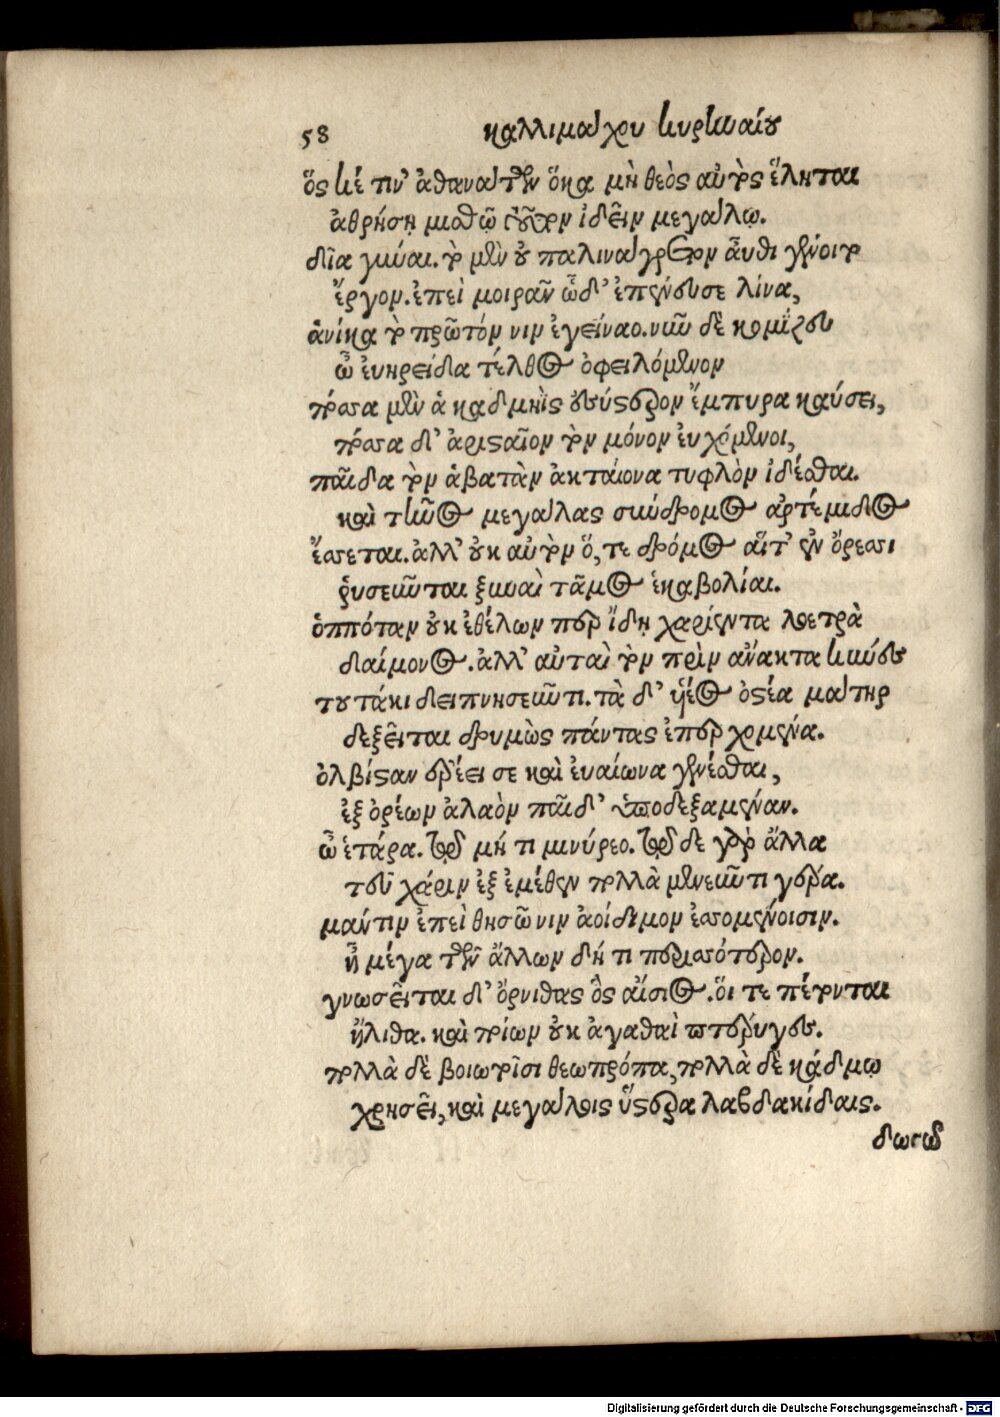 58 καλλιμάχου κυρηναίου
ὅς κέ τιν' ἀθανάτων ὅκα μὴ θεὸς αὐτὸς ἕληται
ἀθρήσῃ μισθῷ τοῦτον ἰδεῖν μεγάλῳ.
δῖα γύναι. τὸ μὲν οὐ παλινάγρετον αὖθι γένοιτο
ἔργον. ἐπεὶ μοιρᾶν ὧδ' ἐπένευσε λίνα,
ἁνίκα τὸ πρῶτόν νιν ἐγείναο. νῦν δὲ κομίζευ
ὦ ἐυηρείδα τέλθος ὀφειλόμενον
πόσσα μὲν ἁ καδμηὶς ἐς ὕστερον ἔμπυρα καύσει,
πόσσα δ' ἀρισταῖον τὸν μόνον ἐυχόμενοι,
παῖδα τὸν ἁβατὰν ἀκταίονα τυφλὸν ἰδέσθαι.
καὶ τῆνος μεγάλας σύνδρομος ἀρτέμιδος
ἔσσεται. ἀλλ' οὐκ αὐτὸν ὅ, τε δρόμος αἵτ' ἐν ὄρεσσι
ῥυσεῦνται ξυναὶ τᾶμος ἑκαβολίαι.
ὁππόταν οὐκ ἐθέλων περ ἴδῃ χαρίεντα λοετρὰ
δαίμονος. ἀλλ' αὐταὶ τὸν πρὶν ἄνακτα κύνες
τουτάκι δειπνησεῦντι. τὰ δ' ὑέος ὀστέα μάτηρ
δεξεῖται δρυμὼς πάντας ἐπερχομένα.
ὀλβίσταν ἐρέει σε καὶ ἐυαίωνα γενέσθαι,
ἐξ ὀρέων ἀλαὸν παῖδ' ὑποδεξαμέναν.
ὦ ἑτάρα. τῷ μή τι μινύρεο. τῷδε γὰρ ἄλλα
τεῦ χάριν ἐξ ἐμέθεν πολλὰ μενεῦντι γέρα.
μαύτιν ἐπεὶ θησῶ νιν ἀοίδιμον ἐσσομένοισιν.
ἦ μέγα τῶν ἄλλων δή τι περισσότερον.
γνωσεῖται δ' ὄρνιθας ὃς αἴσιος. ὅι τε πέτονται
ἤλιθα. καὶ ποίων οὐκ ἀγαθαὶ πτέρυγες.
πολλὰ δὲ βοιωτοῖσι θεωπρόπα, πολλὰ δὲ κάδμῳ
χρησεῖ, καὶ μεγάλοις ὕστερα λαβδακίδαις.
δωσῶ